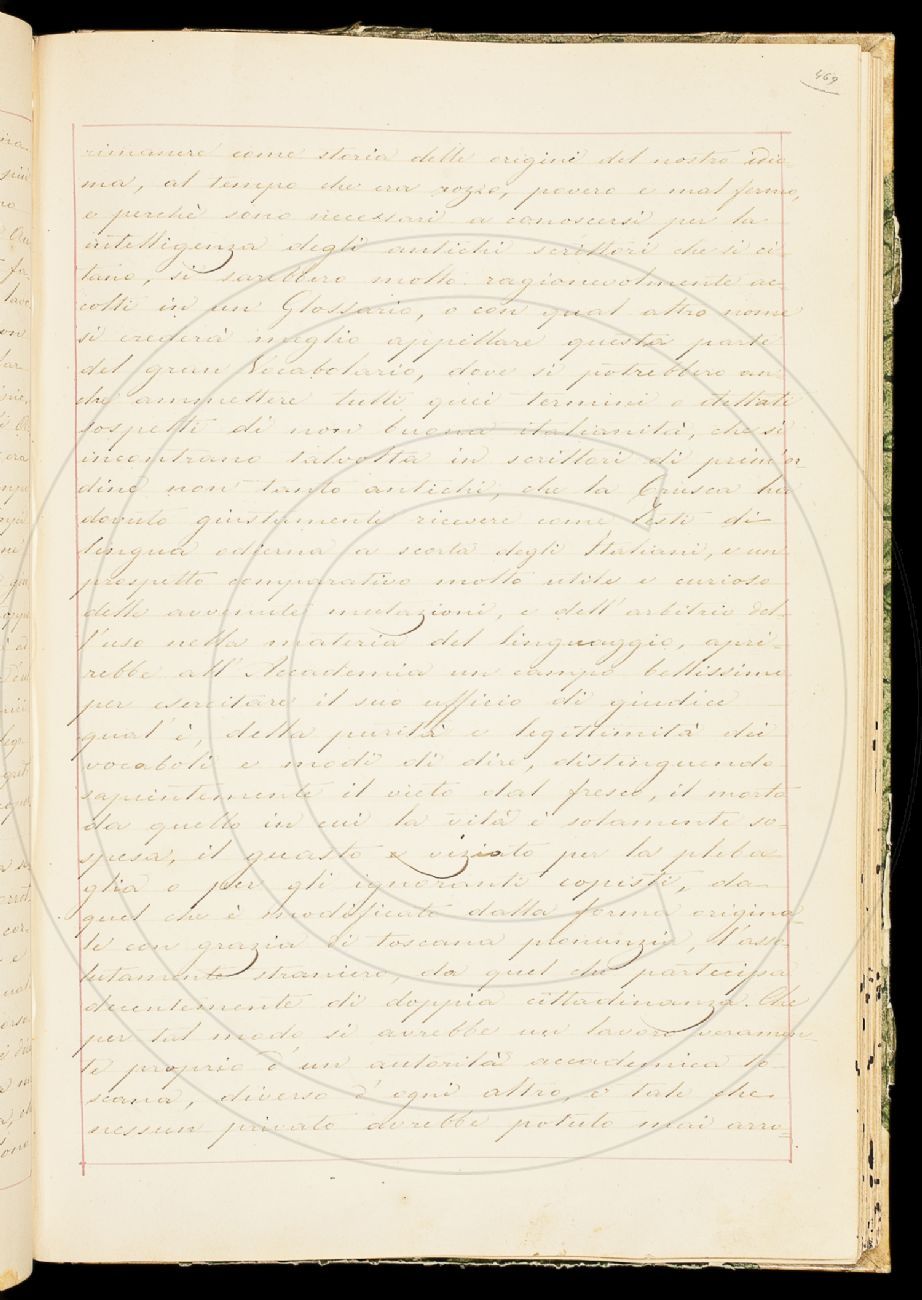 469
rimanere come storia delle origini del nostro idio-
ma, al tempo che era rozzo, povero e mal fermo,
o perchè sono necessari a conoscersi per la
intelligenza degli antichi scrittori che si ci-
tano, si sarebbero molto ragionevolmente ac-
colti in un Glossario, o con qual altro nome
si crederà meglio appellare questa parte
del gran Vocabolario, dove si potrebbero an-
che ammettere tutti quei termini o dettati
sospetti di non buona italianità, che si
incontrano talvolta in scrittori di prim'or
dine non tanto antichi, che la Crusca ha
dovuto giustamente ricevere come testi di
lingua odierna a scorta degli Italiani, e un
prospetto comparativo molto utile e curioso
delle avvenute mutazioni, e dell'arbitrio del-
l'uso nella materia del linguaggio, apri-
rebbe all'Accademia un campo bellissimo
per esercitare il suo ufficio di giudice
qual'è, della purità e legittimità dei
vocaboli e modi di dire, distinguendo
sapientemente il vieto dal fresco, il morto
da quello in cui la vita è solamente so-
spesa, il guasto e viziato per la pleba
glia o per gli ignoranti copisti, da
quel che è modificato dalla forma origina
le con grazia di toscana pronunzia, l'asso-
lutamente straniero, da quel che partecipa
decentemente di doppia cittadinanza. Che
per tal modo si avrebbe un lavoro veramen-
te proprio d'un autorità accademica to-
scana, diverso d'ogni altro, e tale che
nessun privato avrebbe potuto mai arro-